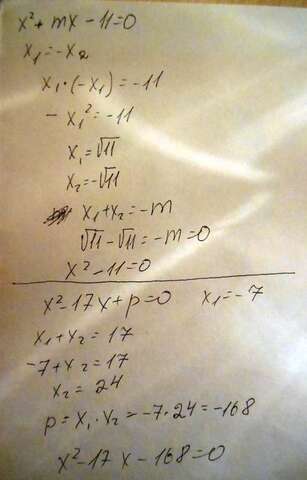 x² + mx - 11 = 0
x₁ = -x₂
x₁ · (-x₁) = -11
- x₁² = -11
x₁ = √11
x₂ = -√11
x₁ + x₂ = -m
√11 - √11 = -m = 0
x² - 11 = 0
x² - 17x + p = 0 x₁ = -7
x₁ + x₂ = 17
-7 + x₂ = 17
x₂ = 24
p = x₁ · x₂ = -7 · 24 = -168
x² - 17x - 168 = 0